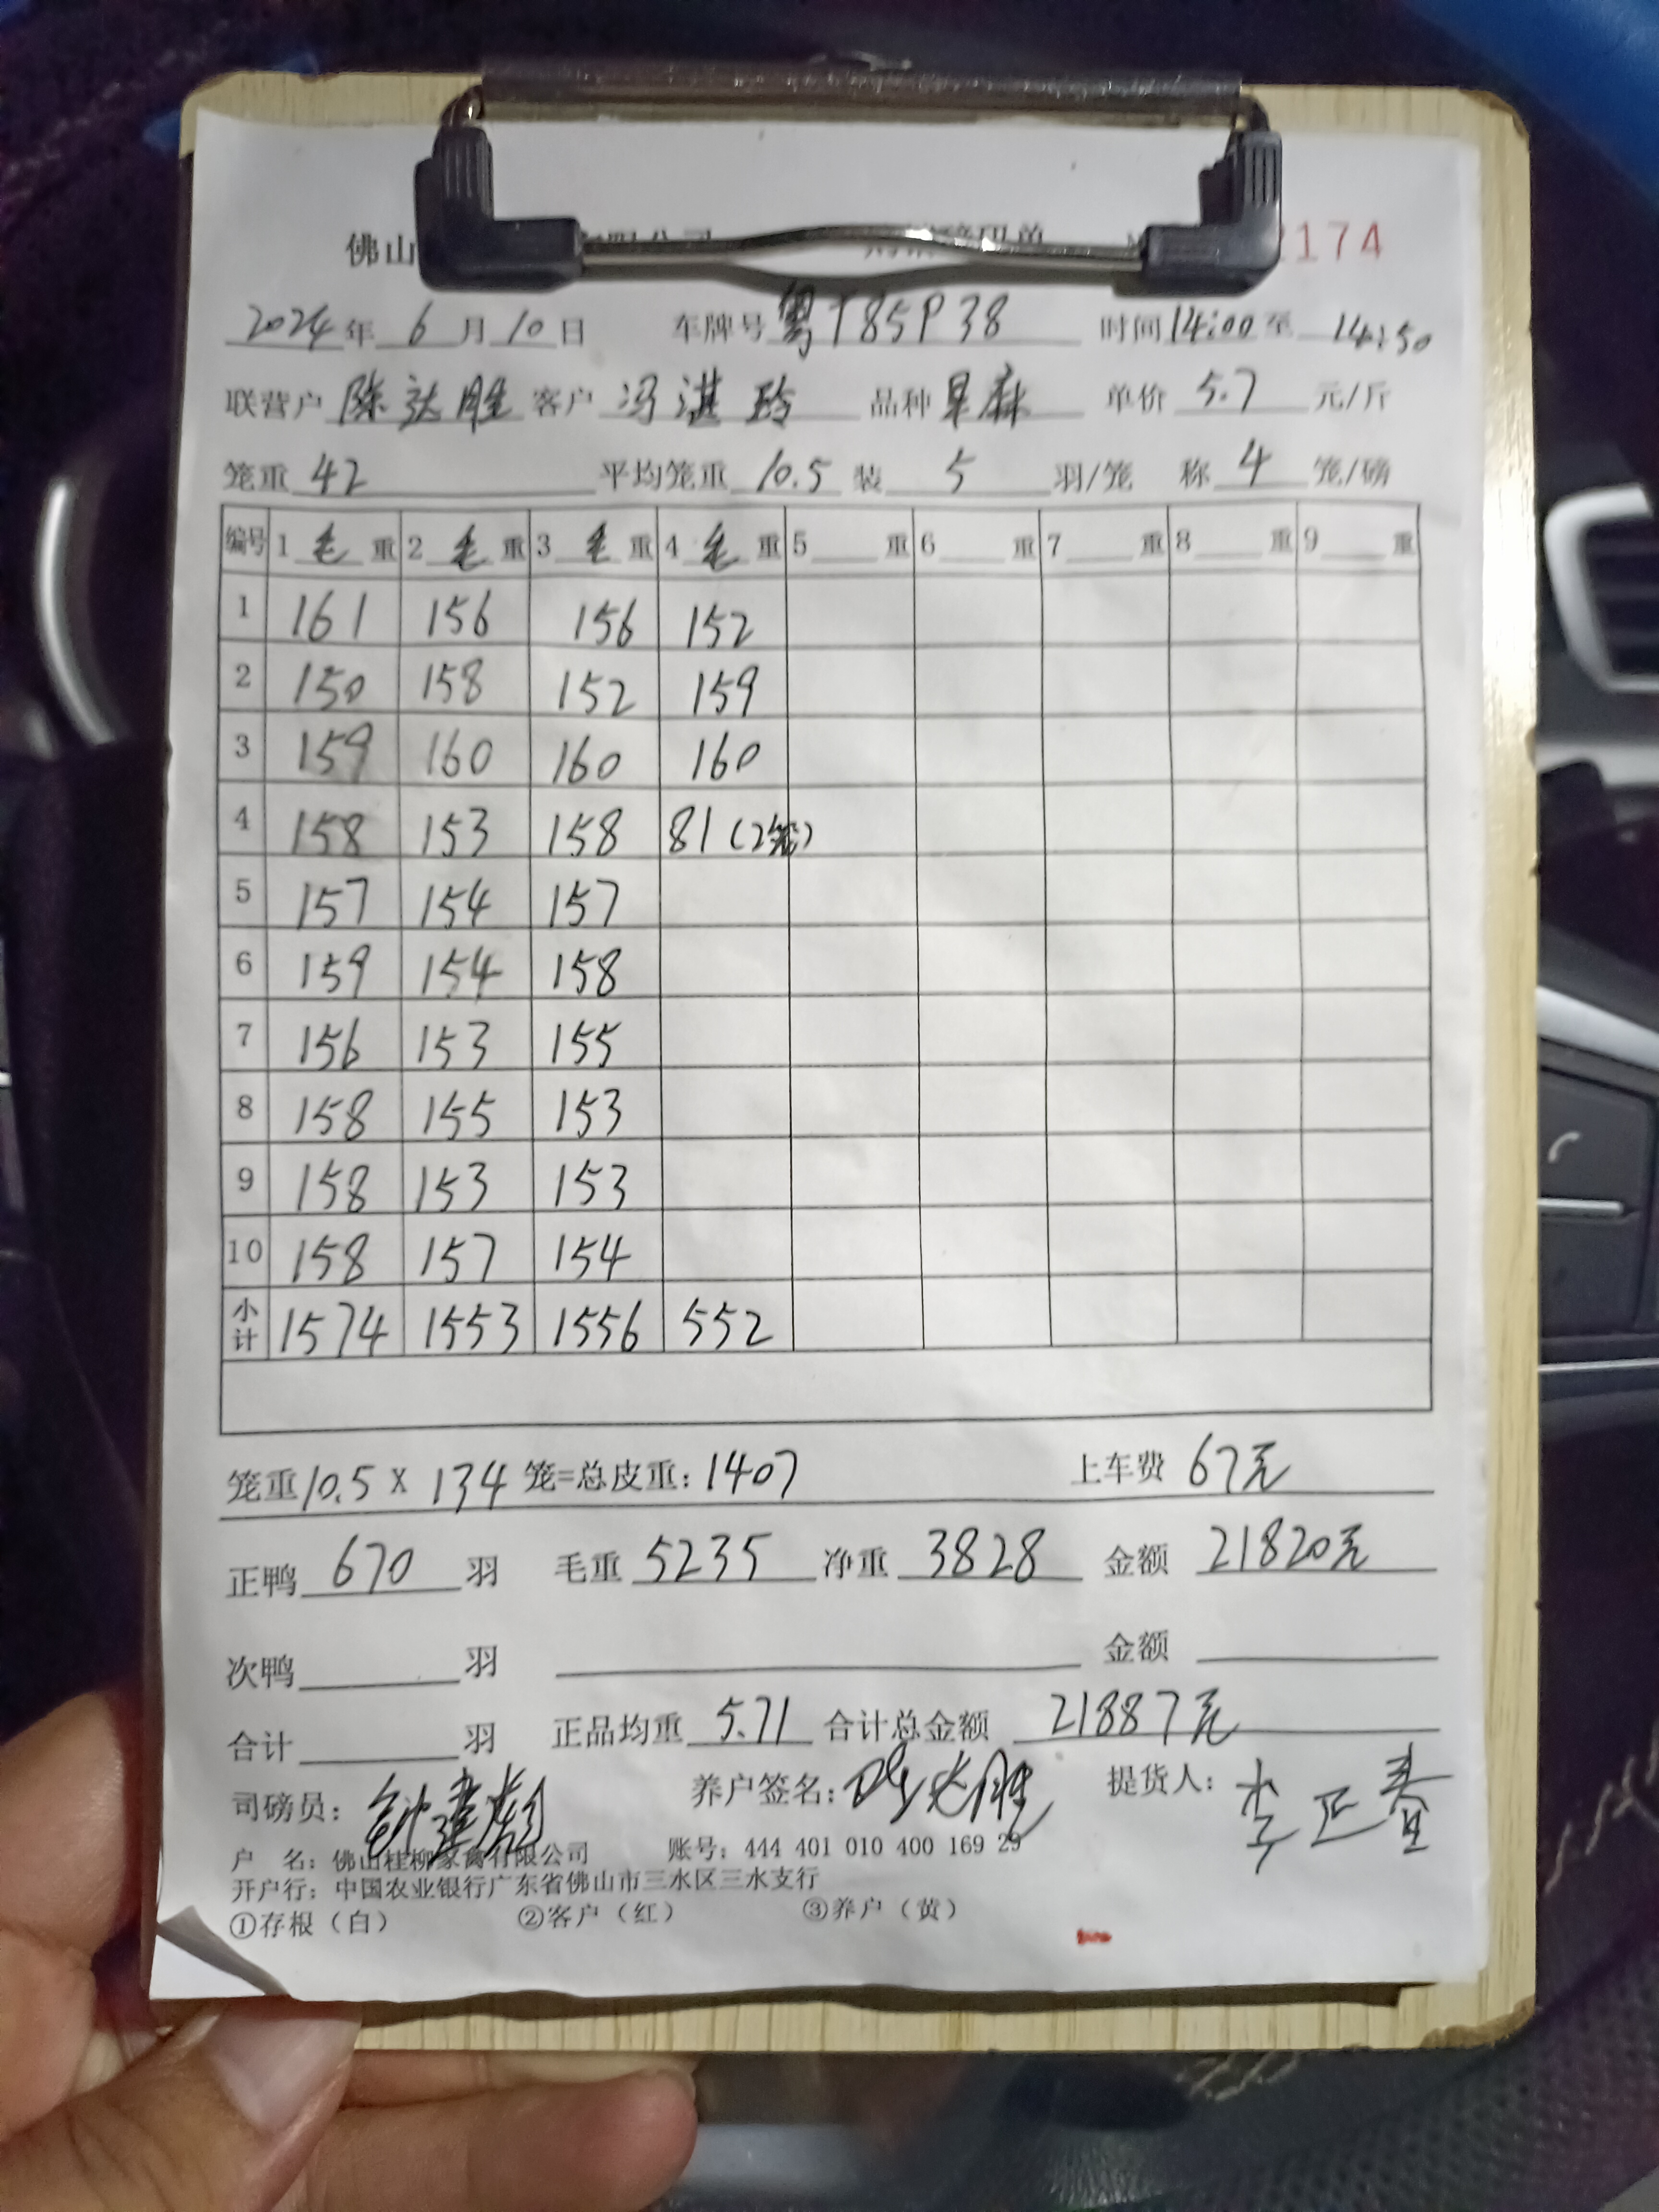 佛山 有限公司 磅码单 2174
2024年 6月10日 车牌号 粤T85P38 时间14:00至 14:50
联营户 陈达胜 客户 冯湛玲 品种 旱麻 单价 5.7 元/斤
笼重 42 平均笼重 10.5 装 5 羽/笼 称 4 笼/磅
编号 1 毛 重 2 毛 重 3 毛 重 4 毛 重 5 重 6 重 7 重 8 重 9 重
1 161 156 156 152
2 150 158 152 159
3 159 160 160 160
4 158 153 158 81(2笼)
5 157 154 157
6 159 154 158
7 156 153 155
8 158 155 153
9 158 153 153
10 158 157 154
小计 1574 1553 1556 552
笼重10.5 X 134 笼=总皮重: 1407 上车费 67元
正鸭 670 羽 毛重 5235 净重 3828 金额 21820元
次鸭 羽 金额
合计 羽 正品均重 5.71 合计总金额 21887元
司磅员: 养户签名: 陈达胜 提货人: 李正春
户 名: 佛山桂柳家禽有限公司 账号: 444 401 010 400 169 29
开户行: 中国农业银行广东省佛山市三水区三水支行
①存根（白） ②客户（红） ③养户（黄）